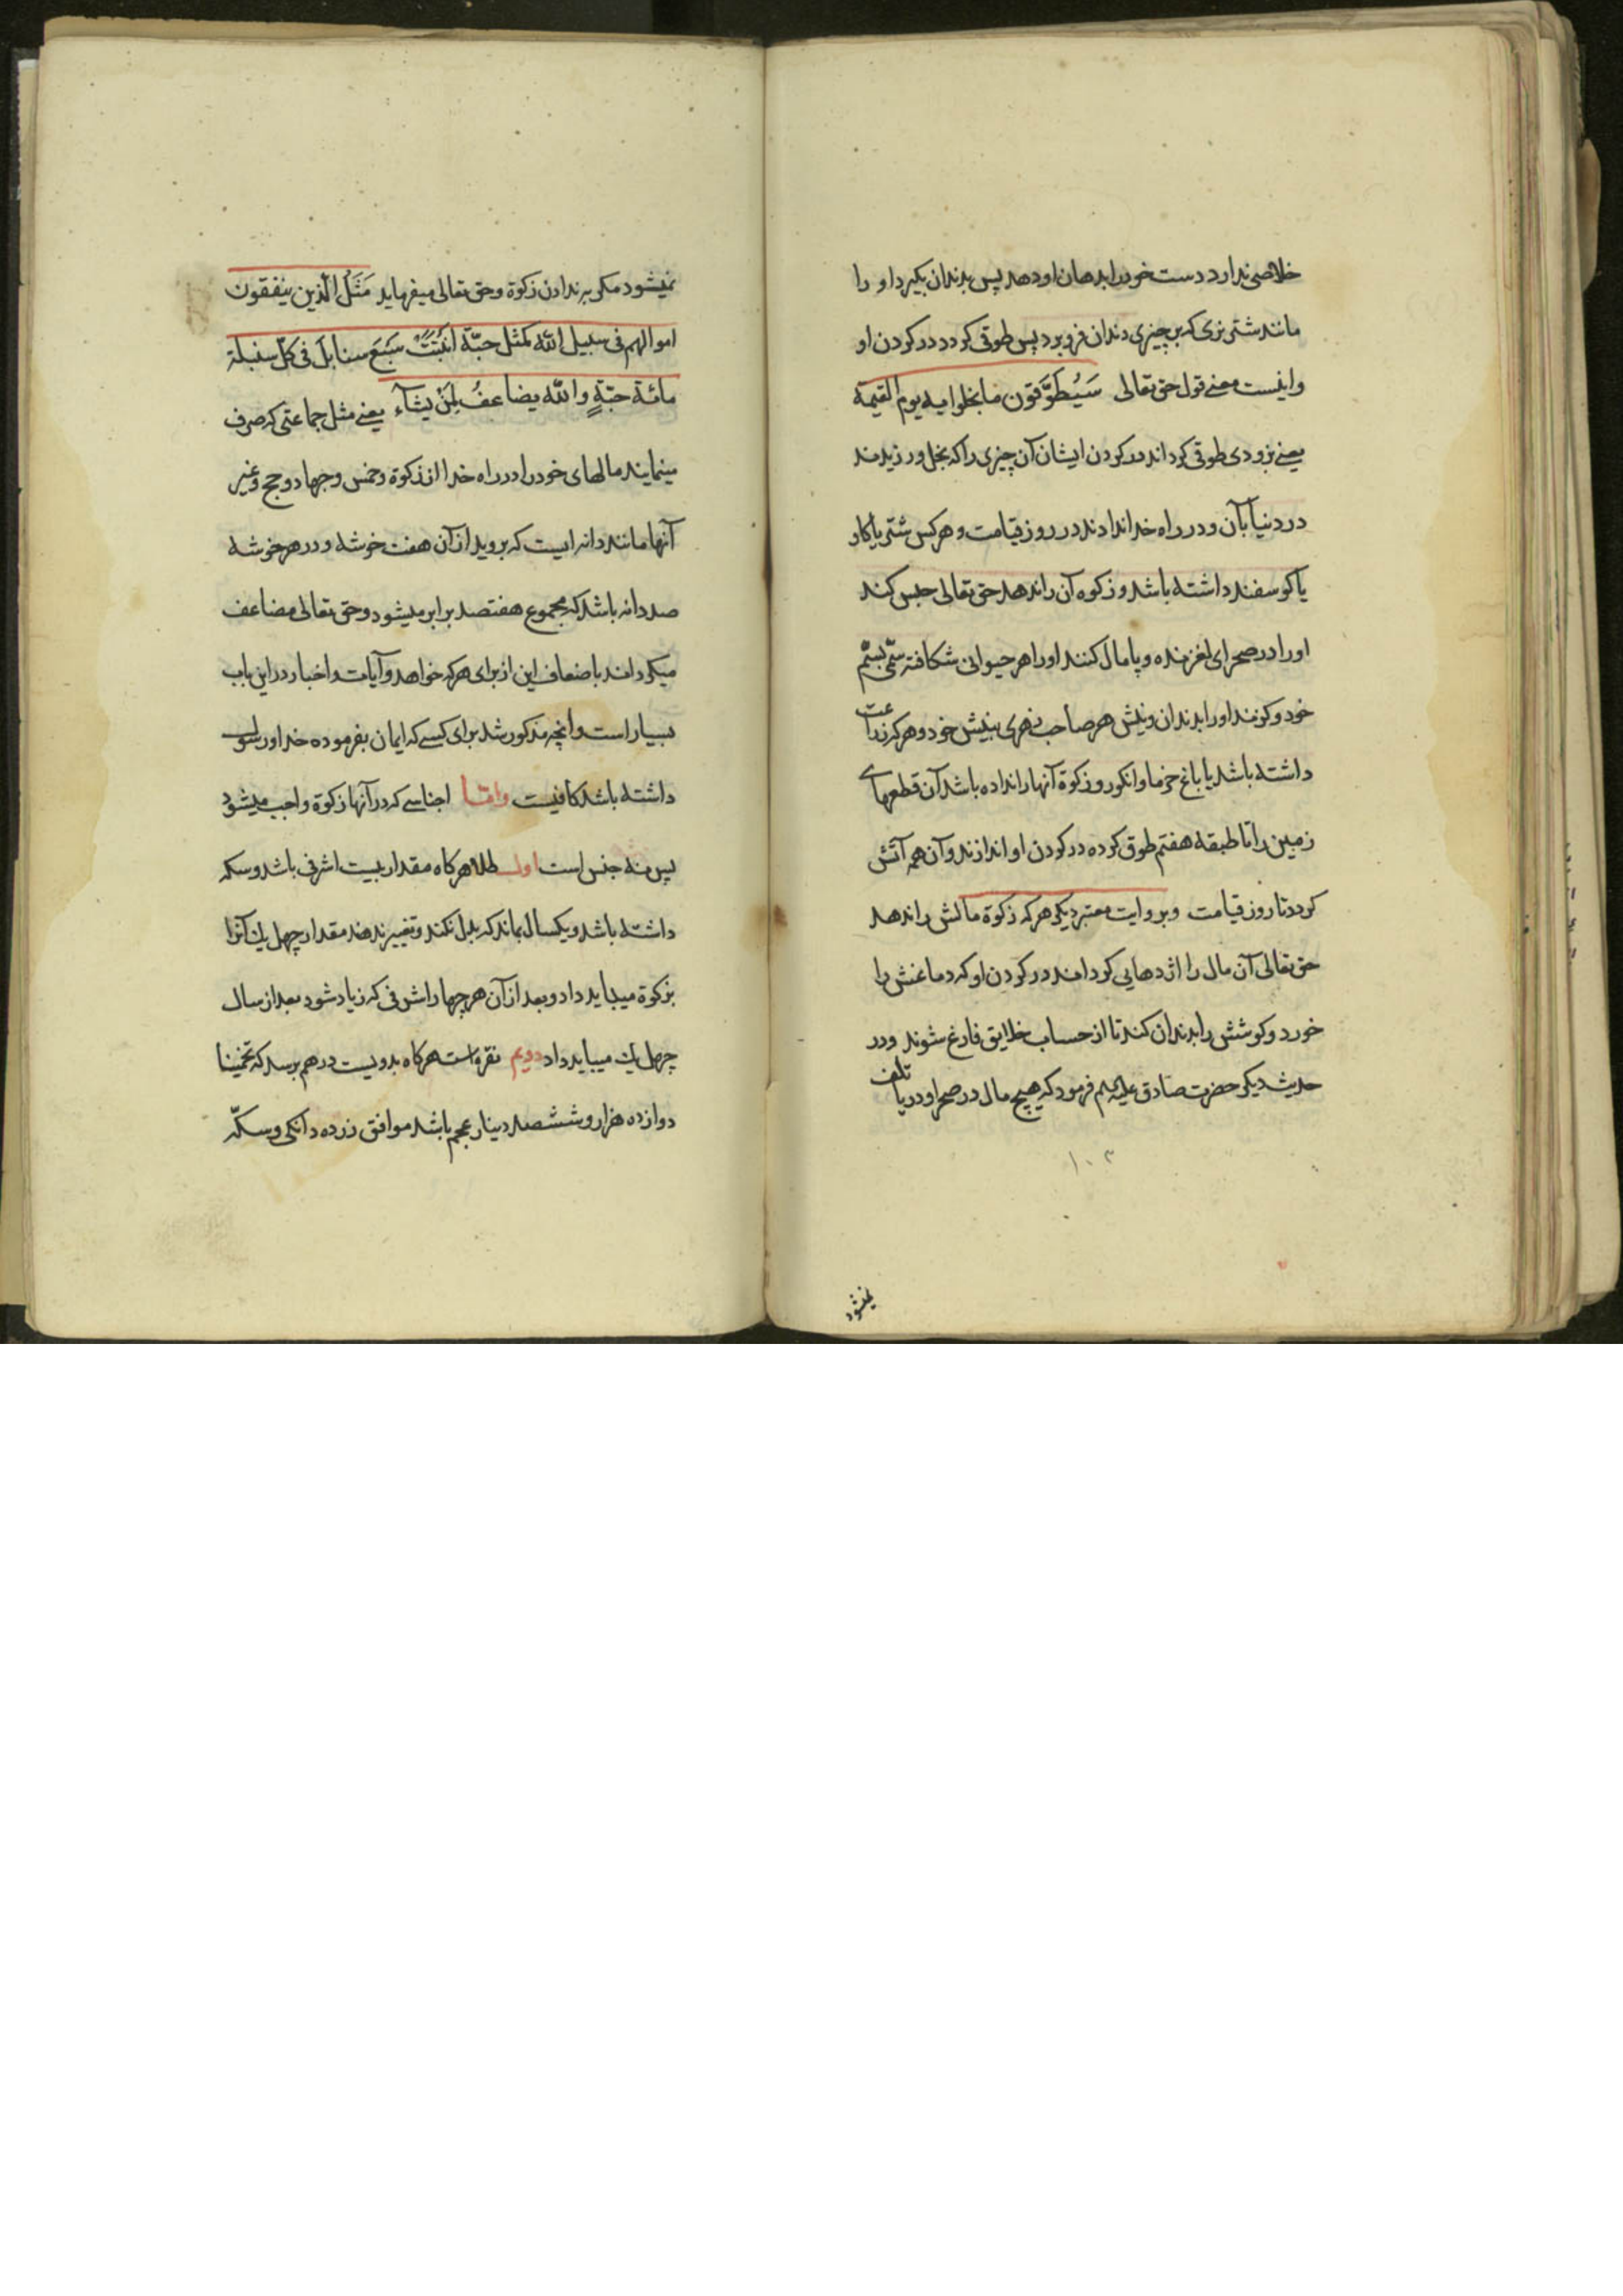 خلاصی ندارد دست خود را بدهان او دهد پس بدندان بکیرد او را
مانند شتر نری که بر چیزی دندان فرو برد پس طوقی کردد در کردن او
و اینست معنے قول حق تعالی سَیُطَوَّقون ما بخلوا به یوم القیمة
یعنے بزودی طوقی کرداند در کردن ایشان آن چیزی را که بخل ورزیدند
در دنیا بآن و در راه خدا ندادند در روز قیامت و هر کس شتر یا کاو
یا کوسفند داشته باشد و زکوه آن را ندهد حق تعالی حبس کند
او را در صحرای لغزنده و پامال کنند او را هر حیوانی شکافته سمّی بسمّ
خود و کزند او را بدندان و نیش هر صاحب زهری بنیش خود و هر که زراعت
داشته باشد یا باغ خرما و انکور و زکوة آنها را نداده باشد آن قطعهای
زمین را تا طبقه هفتم طوق کرده در کردن او اندازند و آن همه آتش
کردد تا روز قیامت و بروایت معتبر دیکر هر که زکوة مالش را ندهد
حق تعالی آن مال را اژدهایی کرداند در کردن او که دماغش را
خورد و کوشش را بدندان کند تا از حساب خلایق فارغ شوند و در
حدیث دیکر حضرت صادق علیه السلم فرمود که هیچ مال در صحرا و دریا تلف
۱۰۳
نمیشود
نمیشود مکر به ندادن زکوة و حق تعالی میفرماید مَثَلُ الّذین ینفقون
اموالهم فی سبیل اللّه کمثل حبّة انبتت سَبعَ سنابل فی کلّ سنبلة
مائة حبّةٍ و اللّه یضاعفُ لِمَنْ یشآء یعنے مثل جماعتی که صرف
مینمایند مالهای خود را در راه خدا از زکوة و خمس و جهاد و حج و غیر
آنها مانند دانه ایست که بروید از آن هفت خوشه و در هر خوشه
صد دانه باشد که مجموع هفتصد برابر میشود و حق تعالی مضاعف
میکرداند باضعاف این از برای هر که خواهد و آیات و اخبار در این باب
بسیار است و آنچه مذکور شد برای کسے که ایمان بفرموده خدا و رسول
داشته باشد کافیست و امّا اجناسے که در آنها زکوة واجب میشود
پس نه جنس است اول طلا هر کاه مقدار بیست اشرفی باشد و سکه
داشته باشد و یکسال بماند که بدل نکند و تغییر ندهد مقدار چهل یك آنرا
بزکوة میباید داد و بعد از آن هر چهار اشرفی که زیاد شود بعد از سال
چهل یك میباید داد دویم نقره است هر کاه بدویست درهم برسد که تخمینا
دوازده هزار و ششصد دینار عجم باشد موافق زر ده دانکی و سکّه